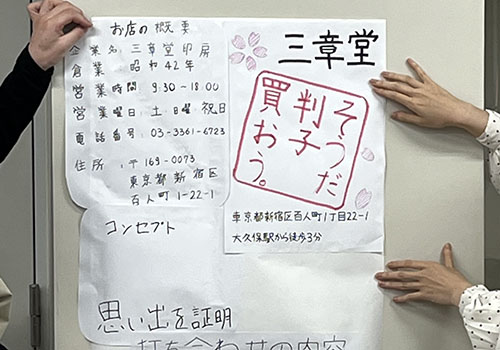 お店の概要
企業名 三章堂印房
創業 昭和42年
営業時間 9:30~18:00
営業曜日 土・日曜・祝日
電話番号 03-3361-6723
住所 〒169-0073
東京都新宿区
百人町1-22-1
三章堂
そうだ
判子
買おう。
東京都新宿区百人町1丁目22-1
大久保駅から徒歩3分
コンセプト
思い出を証明
打ち合わせの内容